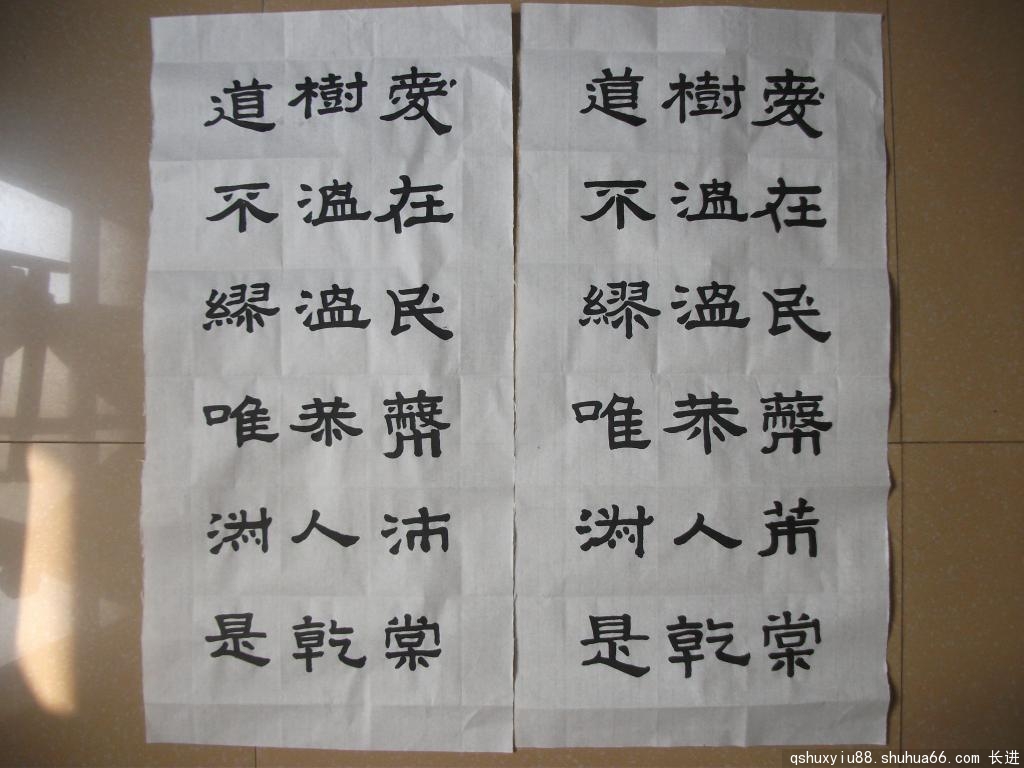 愛在民蔽芾棠
樹溫溫恭人乾
道不繆唯淑是
愛在民蔽沛棠
樹溫溫恭人乾
道不繆唯淑是
qshuxyiu88.shuhua66.com 长进